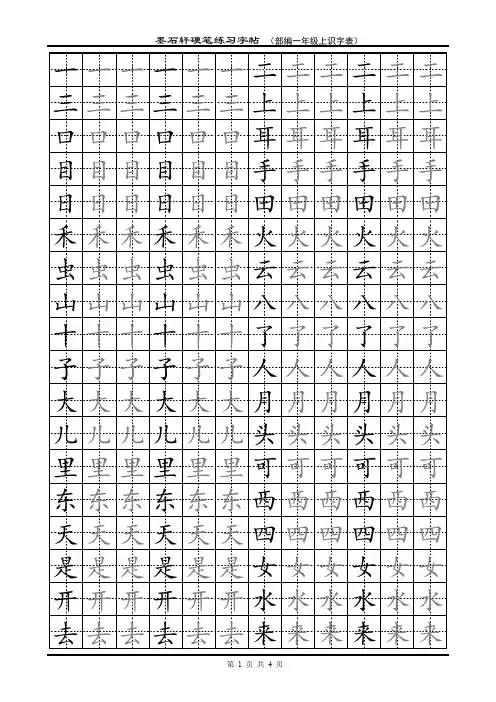 墨石轩硬笔练习字帖 （部编一年级上识字表）
一一一一一一二二二二二二
三三三三三三上上上上上上
口口口口口口耳耳耳耳耳耳
目目目目目目手手手手手手
日日日日日日田田田田田田
禾禾禾禾禾禾火火火火火火
虫虫虫虫虫虫云云云云云云
山山山山山山八八八八八八
十十十十十十了了了了了了
子子子子子子人人人人人人
大大大大大大月月月月月月
儿儿儿儿儿儿头头头头头头
里里里里里里可可可可可可
东东东东东东西西西西西西
天天天天天天四四四四四四
是是是是是是女女女女女女
开开开开开开水水水水水水
去去去去去去来来来来来来
第 1 页 共 4 页